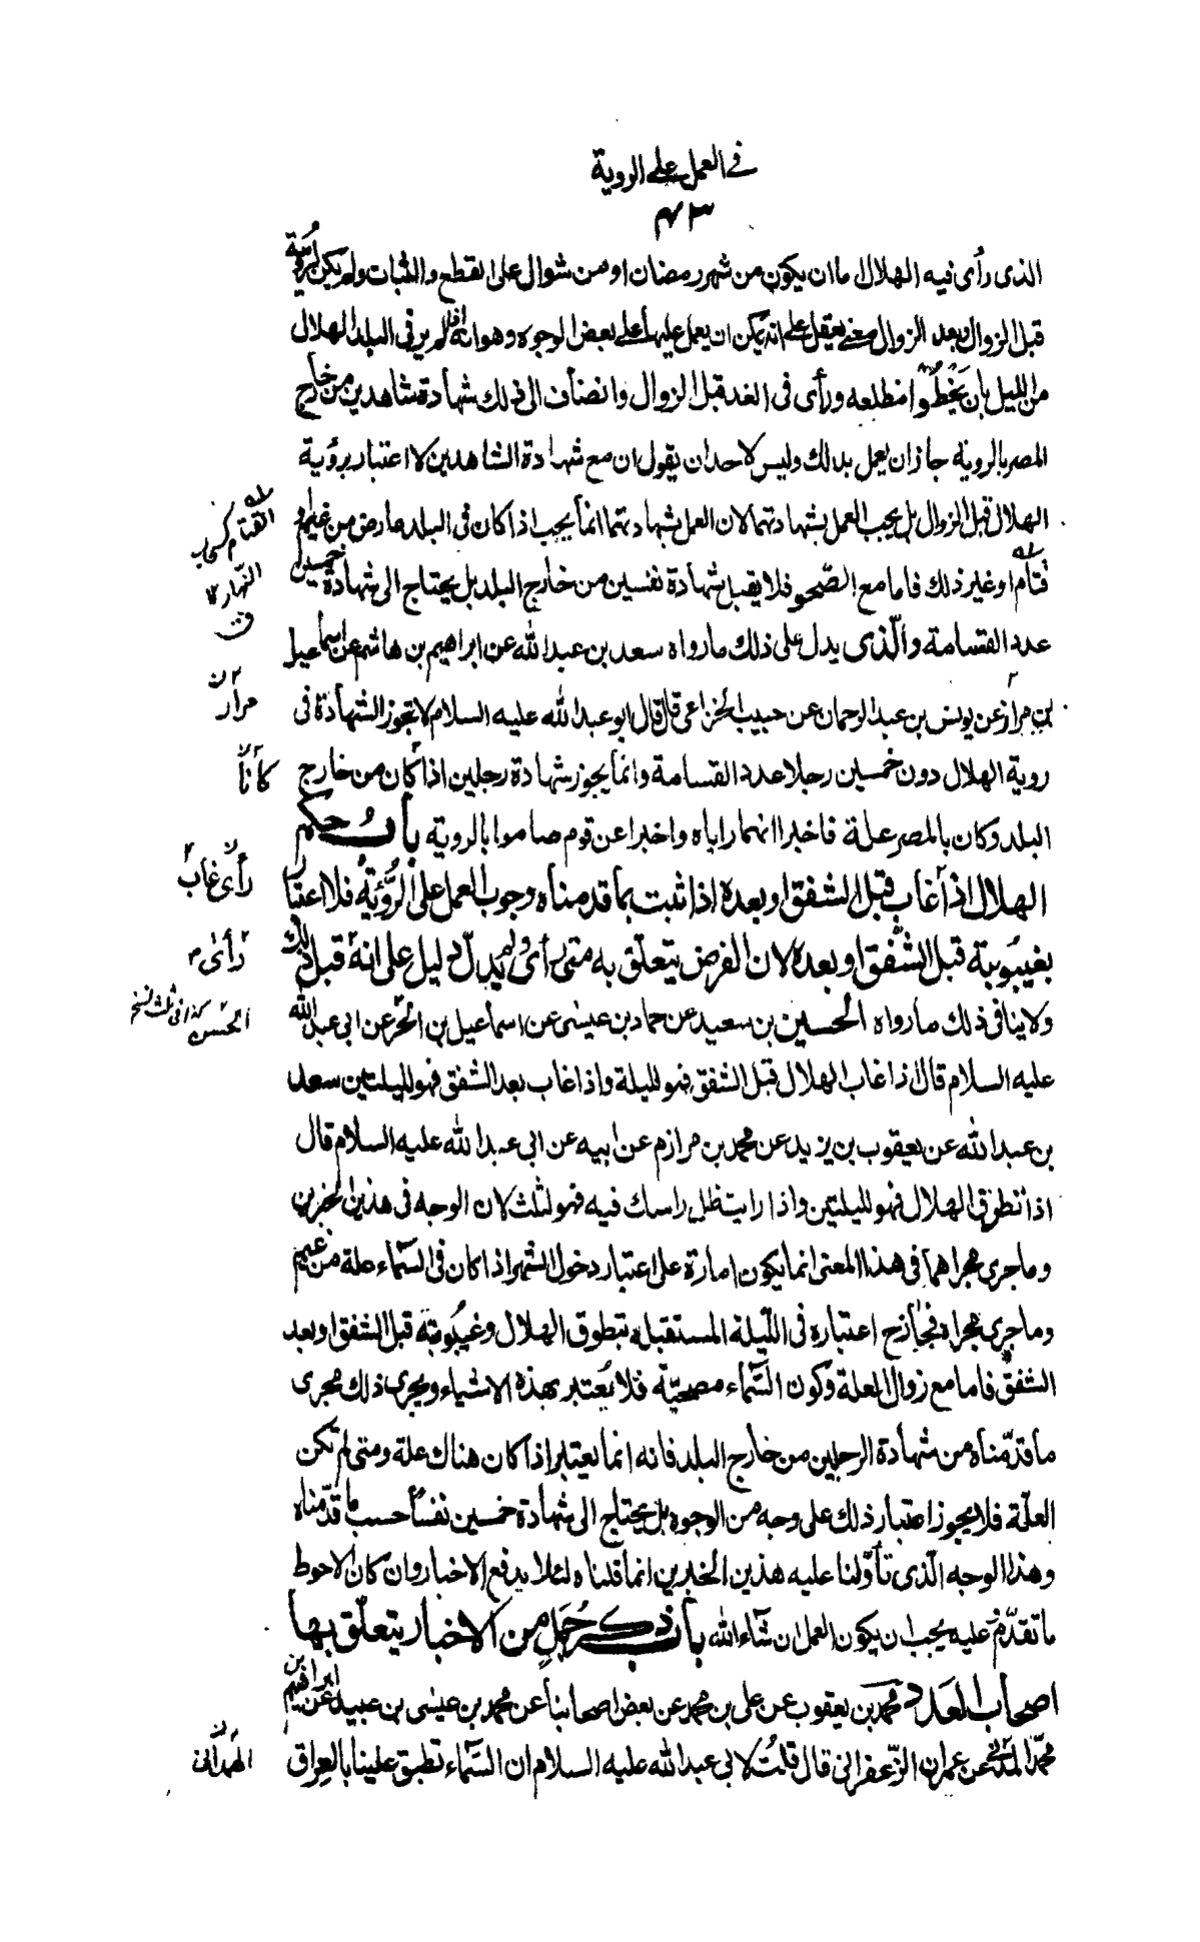 في العمل على الروية
٤٣
الذى رأى فيه الهلال اما ان يكون من شهر رمضان او من شوال على القطع والثبات ولم يكن لرؤية
قبل الزوال وبعد الزوال معنى يعقل على انه يمكن ان يعمل عليها على بعض الوجوه وهو انه اذا لم ير فى البلد الهلال
من الليل بان يخطؤا مطلعه ورأى فى الغد قبل الزوال وانضاف الى ذلك شهادة شاهدين من خارج
المصر بالروية جاز ان يعمل بذلك وليس لاحد ان يقول ان مع شهادة الشاهدين لا اعتبار برؤية
الهلال قبل الزوال بل يجب العمل بشهادتهما لان العمل بشهادتهما انما يجب اذا كان فى البلد عارض من غيم او
قتام او غير ذلك فاما مع الصّحو فلا يقبل شهادة نفسين من خارج البلد بل يحتاج الى شهادة خمسين
عدد القسامة والّذى يدل على ذلك ما رواه سعد بن عبد الله عن ابراهيم بن هاشم عن اسماعيل
بن مرار عن يونس بن عبد الرحمان عن حبيب الخزاعى قال قال ابو عبد الله عليه السلام لا تجوز الشهادة فى
روية الهلال دون خمسين رجلا عدد القسامة وانما يجوز شهادة رجلين اذا كان من خارج
البلد وكان بالمصر علة فاخبرا انهما راياه واخبرا عن قوم صاموا بالروية باب حكم
الهلال اذا غاب قبل الشفق او بعده اذا ثبت بما قدمناه وجوب العمل على الرّؤية فلا اعتبار
بغيبوبية قبل الشّفق او بعده لان الفرض يتعلّق به متى رأى ولم يدلّ دليل على انه قبل ذلك
ولا ينافى ذلك ما رواه الحسين بن سعيد عن حماد بن عيسى عن اسماعيل بن الحر عن ابى عبد الله
عليه السلام قال اذا غاب الهلال قبل الشفق فهو لليلة واذا غاب بعد الشفق فهو لليلتين سعد
بن عبد الله عن يعقوب بن يزيد عن محمد بن مرازم عن ابيه عن ابى عبد الله عليه السلام قال
اذا تطوق الهلال فهو لليلتين واذا رايت ظل راسك فيه فهو لثلث لان الوجه فى هذين الخبرين
وما جرى مجراهما فى هذا المعنى انما يكون امارة على اعتبار دخول الشهر اذا كان فى السّماء علة من غيم
وما جرى مجراه فجاز ح اعتباره فى اللّيلة المستقبلة بتطوق الهلال وغيبوبته قبل الشفق او بعد
الشفق فاما مع زوال العلة وكون السّماء مصحيّة فلا يعتبر بهذه الاشياء ويجرى ذلك مجرى
ما قدّمناه من شهادة الرجلين من خارج البلد فانه انما يعتبر اذا كان هناك علة ومتى لم تكن
العلّة فلا يجوز اعتبار ذلك على وجه من الوجوه بل يحتاج الى شهادة خمسين نفسا حسب ما قدّمناه
وهذا الوجه الّذى تأوّلنا عليه هذين الخبرين انما قلناه لئلا يدفع الاخبار وان كان الاحوط
ما تقدّم عليه يجب ان يكون العمل ان شاء الله باب ذكر جمل من الاخبار يتعلّق بها
اصحاب العدد محمد بن يعقوب عن على بن محمد عن بعض اصحابنا عن محمد بن عيسى بن عبيد عن ابراهيم بن
محمّد المدنى عن عمران الزّعفرانى قال قلت لابى عبد الله عليه السلام ان السّماء تطبق علينا بالعراق
القتام كسحاب
النهار لا
ق
مرار
كانا
رأى غاب
رأى م
الحسن كذا فى ثلث نسخ
الهمدانى